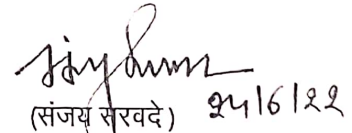 (संजय सरवदे) २५/6/२२